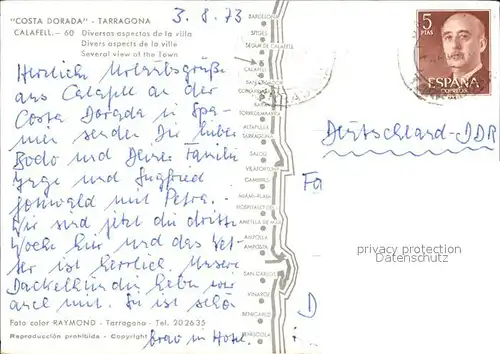 "COSTA DORADA" - TARRAGONA
CALAFELL. — 60 Diversos aspectos de la villa
Divers aspects de la ville
Several view of the Town
3.8.73
Herzliche Urlaubsgrüße
aus Calafell an der
Costa Dorada in Spa-
nien senden Dir lieber
Bodo und Deiner Familie
Inge und Siegfried
mit Petra.
Wir sind jetzt die dritte
Woche hier und das Wet-
ter ist herrlich. Unsere
Dackelhündin haben wir
auch mit. Sie ist schön
brav in Hotel.
Foto color RAYMOND - Tarragona - Tel. 202635
Reproducción prohibida - Copyright
BARCELONA
SITGES
SEGUR DE CALAFELL
CALAFELL
SAN SALVADOR
TORREDEMBARRA
ALTAFULLA
TARRAGONA
SALOU
VILAFORTUNY
CAMBRILS
MIAMI-PLAYA
HOSPITALET DEL I.
AMETLLA DE MAR
AMPOLLA
AMPOSTA
SAN CARLOS
VINAROZ
BENICARLO
PEÑISCOLA
5
PTAS
ESPAÑA
CORREOS
Deutschland-DDR
Fa
D
privacy protection
Datenschutz